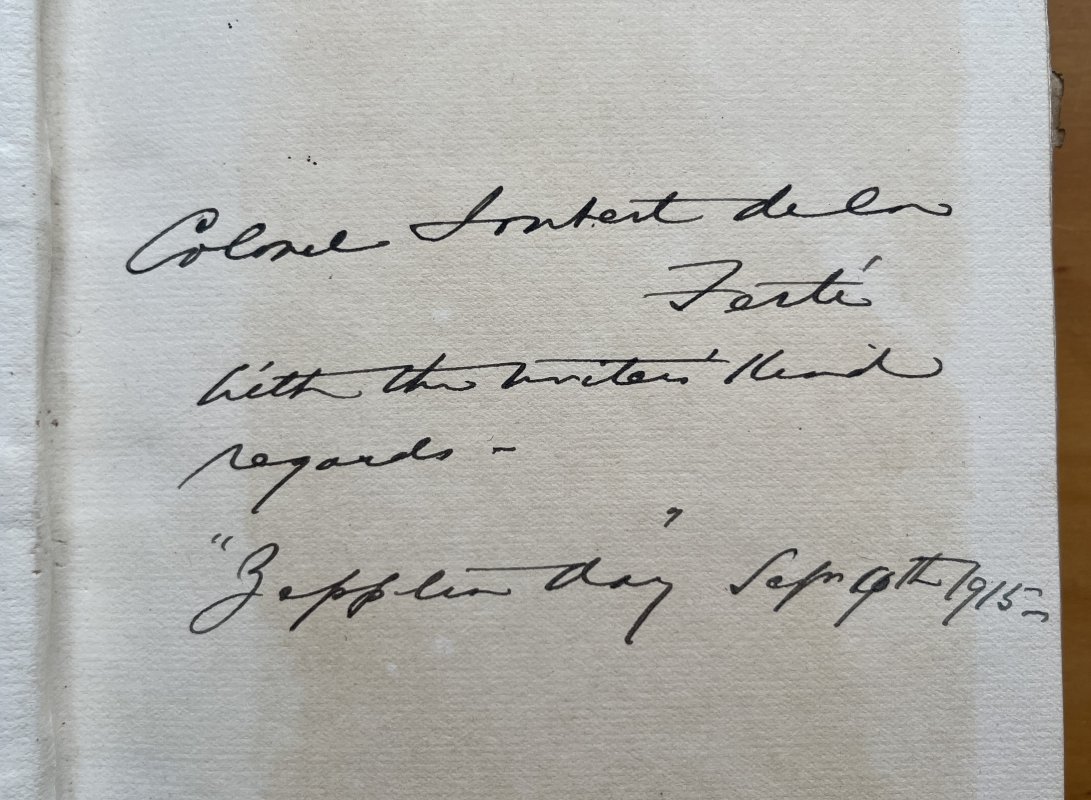 Colonel Joubert de la
Ferté
With the writer's Kind
regards -
"Zepplin day" Sepr 9th 1915